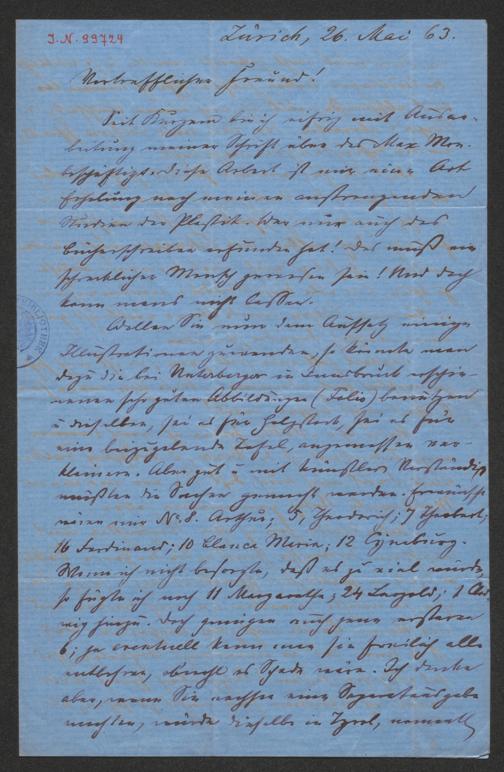 I.N. 99724
Zürich, 26. Mai 63.
Vortrefflicher Freund!
Seit Kurzem bin ich eifrig mit Ausar-
beitung meiner Schrift über das Max Mon.
beschäftigt. Diese Arbeit ist mir eine Art
Erholung nach meinen anstrengenden
Studien der Plastik. Wer nur auch das
Bücherschreiben erfunden hat! Das muß ein
schrecklicher Mensch gewesen sein! Und doch
kann mans nicht lassen.
Wollen Sie nun dem Aufsatz einige
Illustrationen zuwenden, so könnte man
dazu die bei Unterberger in Innsbruck erschie-
nenen sehr guten Abbildungen (Folio) benützen
u dieselben, sei es für Holzstock, sei es für
eine beizugebende Tafel, angemessen ver-
kleinern. Aber gut u mit künstler. Verständniß
müßten die Sachen gemacht werden. Erwünscht
wären mir No. 8. Arthur; 5, Theoderich; 7 Theobert;
16 Ferdinand; 10 Blanca Maria; 12 Cymburg.
Wenn ich nicht besorgte, daß es zu viel würde,
so fügte ich noch 11 Margaretha; 24 Leopold; 1 Clod
wig hinzu. Doch genügen auch jene ersteren
6; ja eventuell kann man sie freilich alle
entbehren, obwohl es Schade wäre. Ich denke
aber, wenn Sie nachher eine Separatausgabe
machten, würde dieselbe in Tyrol, namentl.